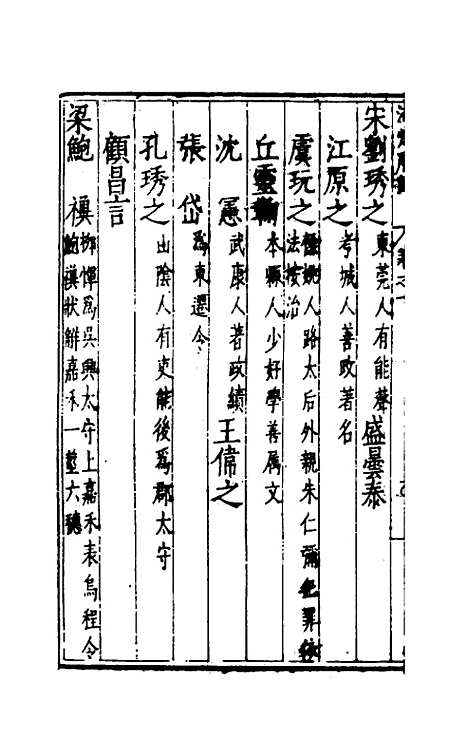 宋劉琇之東莞人有能聲 盛曇泰
江原之考城人善政著名
虞玩之餘姚人路太后外親朱仁彌犯罪依
法按治
丘靈鞠本縣人少好學善属文
沈 憲武康人著政績 王偹之
張 岱為東遷令
孔琇之山陰人有吏能後為郡太守
顧昌言
梁鮑 䙴柳惲為吳興太守上嘉禾表烏程令
鮑䙴狀觧嘉禾一莖六穗